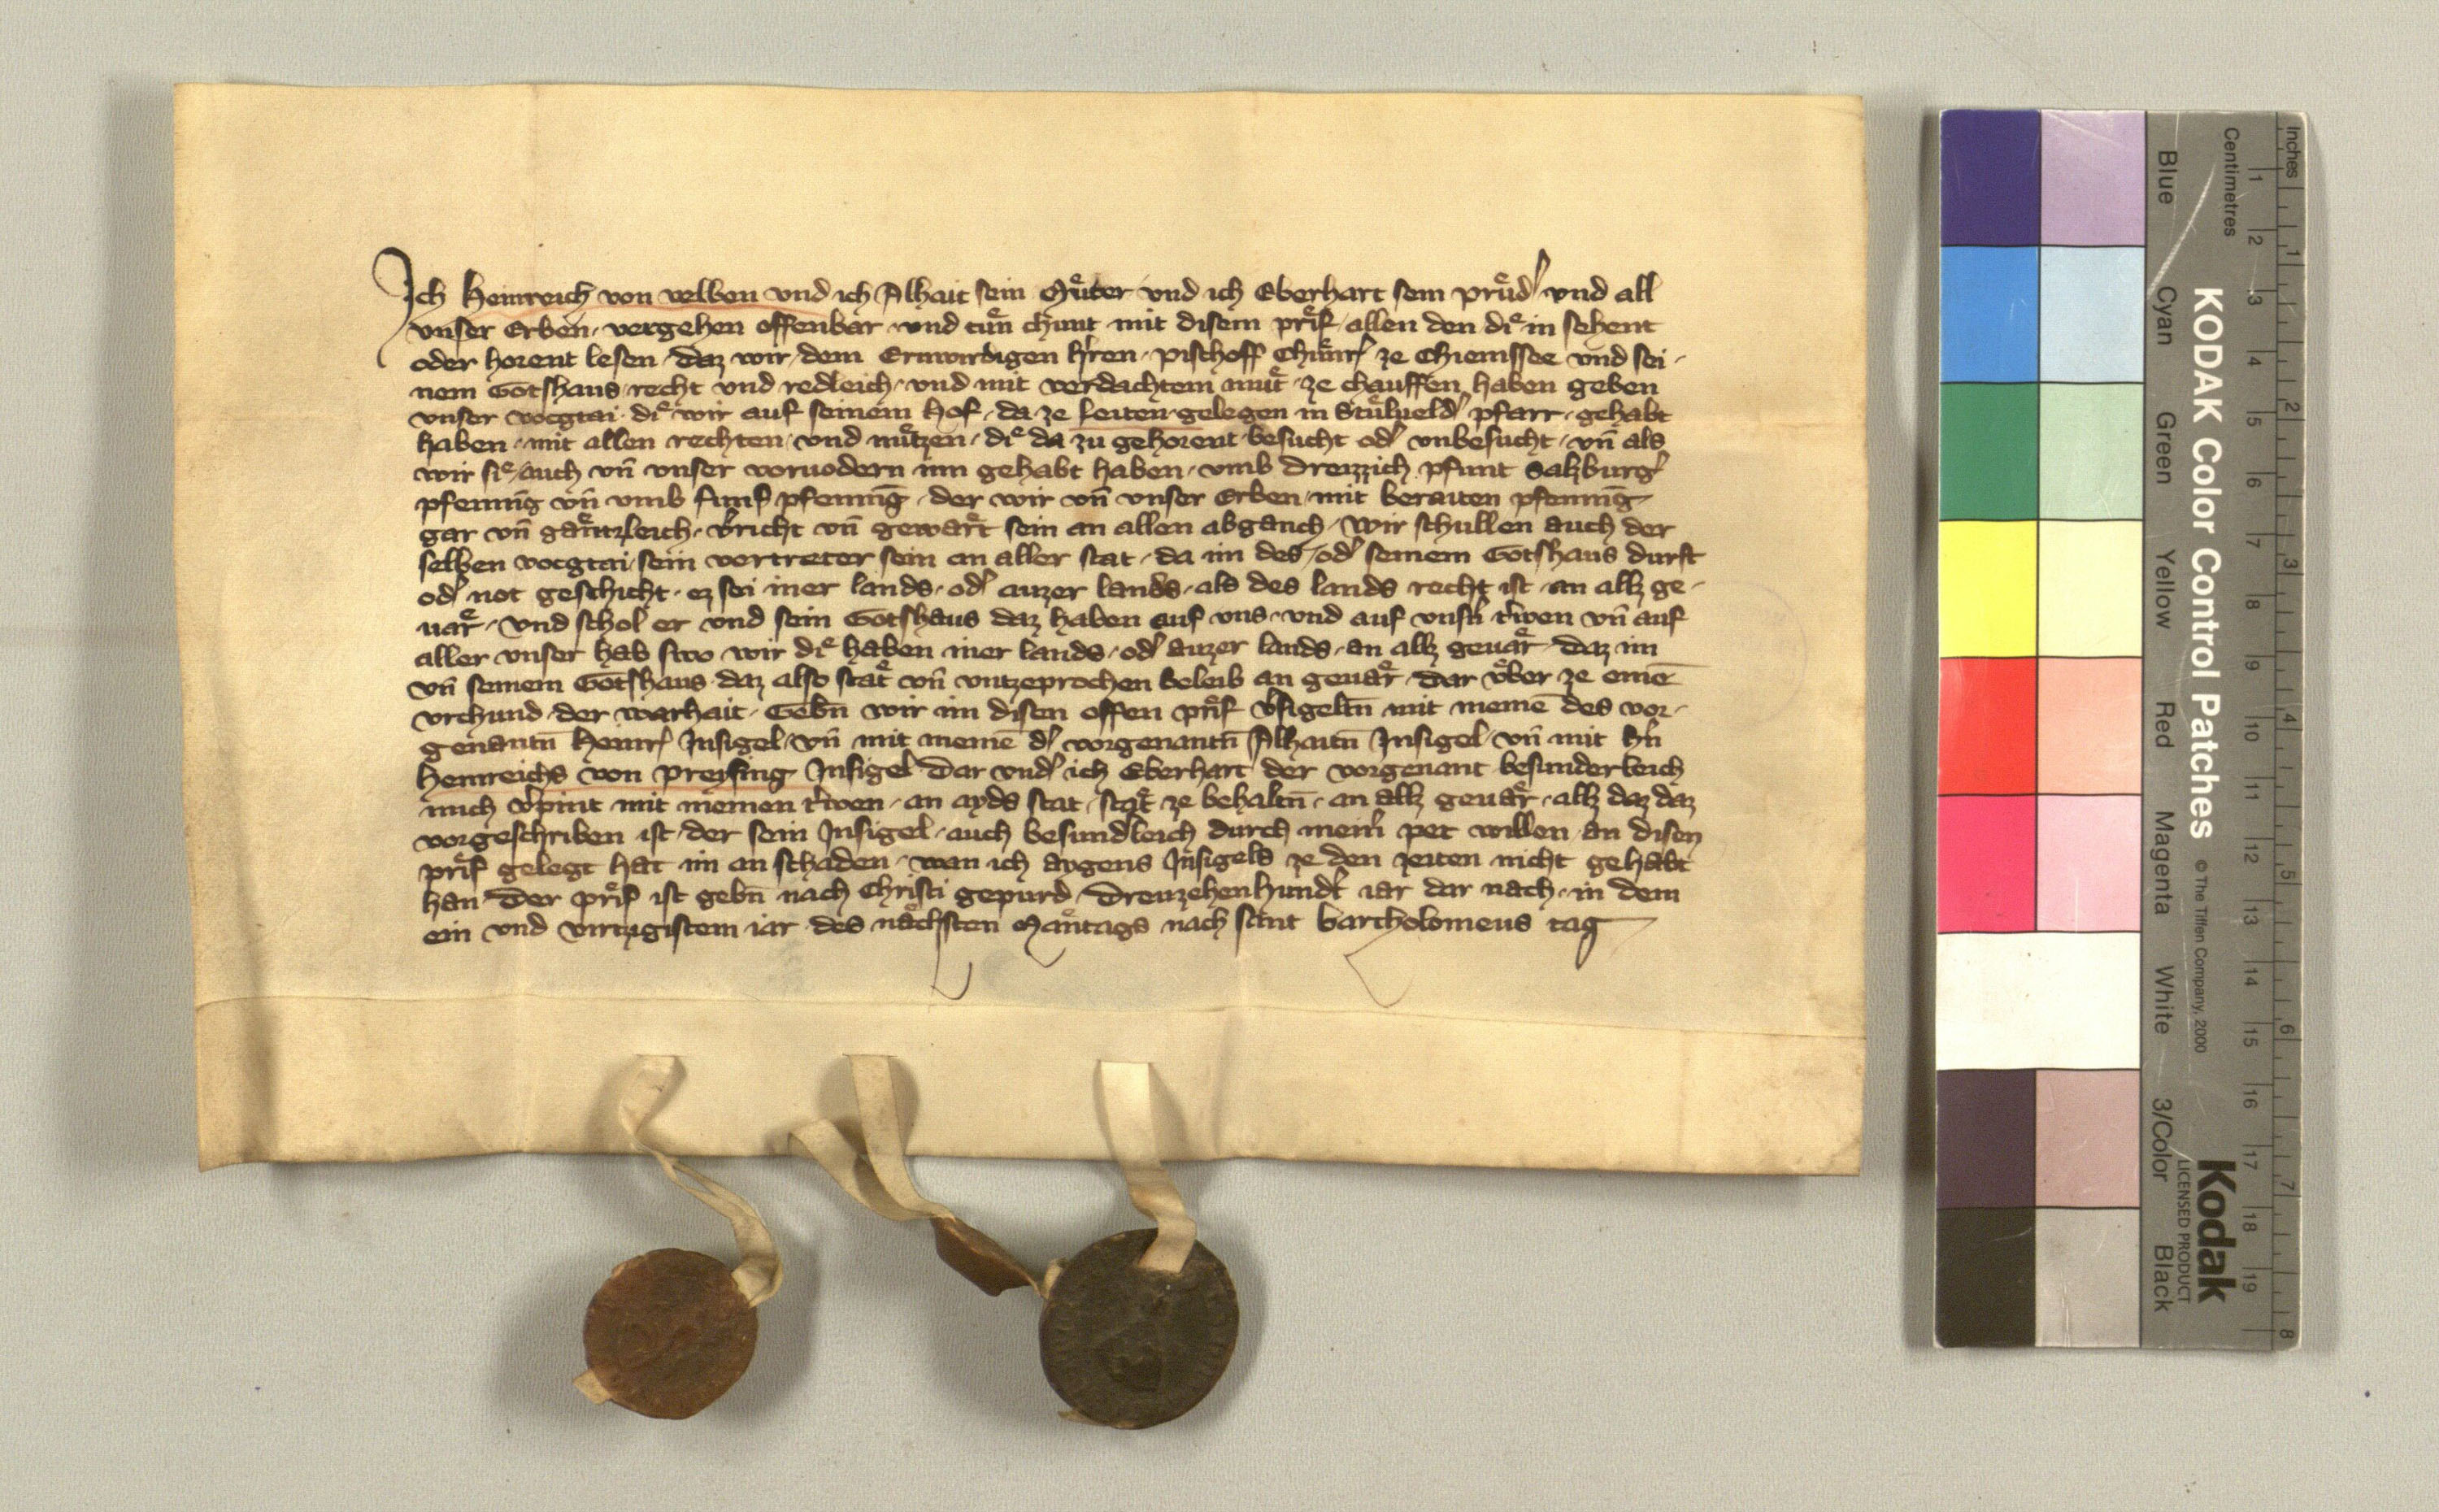 Ich Heinreich von velben vnd ich Alhait sein Můter vnd ich Eberhart sein průdˀ vnd all
vnser Erben vergehen offenbar vnd tůn chunt mit disem prif allen den die in sehent
oder horent lesen daz wir dem Erwirdigen hˀren pischoff Chůnrˀ ze Chiemssee vnd sei-
nem Gotshaus recht vnd redleich vnd mit verdachtem můt ze chauffen haben geben
vnser vocgtai die wir auf seinem hof da ze Leiten gelegen in Stůlueldˀ pfarr gehabt
haben mit allen rechten vnd nůtzen die da zu gehorent besucht odˀ vnbesucht vn̄ als
wir sie auch vn̄ vnser voruodern inn gehabt haben vmb dreizzich pfunt Salzburgˀ
pfennīg vn̄ vmb funf pfennīg der wir vn̄ vnser Erben mit beraiten pfennīg
gar vn̄ gäntzleich vˀricht vn̄ gewärt sein an allen abganch Wir schullen auch der
selben vocgtai sein vertreter sein an aller stat da im des odˀ seinem Gotshaus durft
odˀ not geschicht ez sei iner lands odˀ auzer lands als des lands recht ist an allz ge-
uär Vnd schol er vnd sein Gotshaus daz haben auf vns vnd auf vnsˀn trˀwen vn̄ auf
aller vnser hab swo wir die haben iner lands odˀ auzer lands an allz geuär daz im
vn̄ seinem Gotshaus daz also stät vn̄ vntzeprochen beleib an geuär dar vͤber ze einē
vrchund der warhait Gebn̄ wir im disen offen prif vˀsigeltn̄ mit meinē des vor-
genantn̄ Heinrˀ Insigel vn̄ mit meinē dˀ vorgenantn̄ Alhaitn̄ Insigel vn̄ mit hˀn
Heinreichs von Preysing Insigel dar vndˀ ich Eberhart der vorgenant besunderleich
mich vˀpint mit meinen trˀwen an ayds stat stät ze behaltn̄ an allz geuär allz daz daz
vorgeschriben ist der sein Insigel auch besundˀleich durch meinˀ pet willen an disen
prif gelegt hat im an schaden wan ich aygens Insigels ze den zeiten nicht gehabt
han Der prif ist gebn̄ nach Christi gepurd Dreuzehenhundˀt iar dar nach in dem
ein vnd virtzgistem iar des nächsten Mäntags nach sant Bartholomeus tag
Inches
Centimetres
KODAK Color Control Patches
© The Tiffen Company, 2000
Kodak
LICENSED PRODUCT
Blue Cyan Green Yellow Red Magenta White 3/Color Black
1 2 3 4 5 6 7 8 9 10 11 12 13 14 15 16 17 18 19
1 2 3 4 5 6 7 8